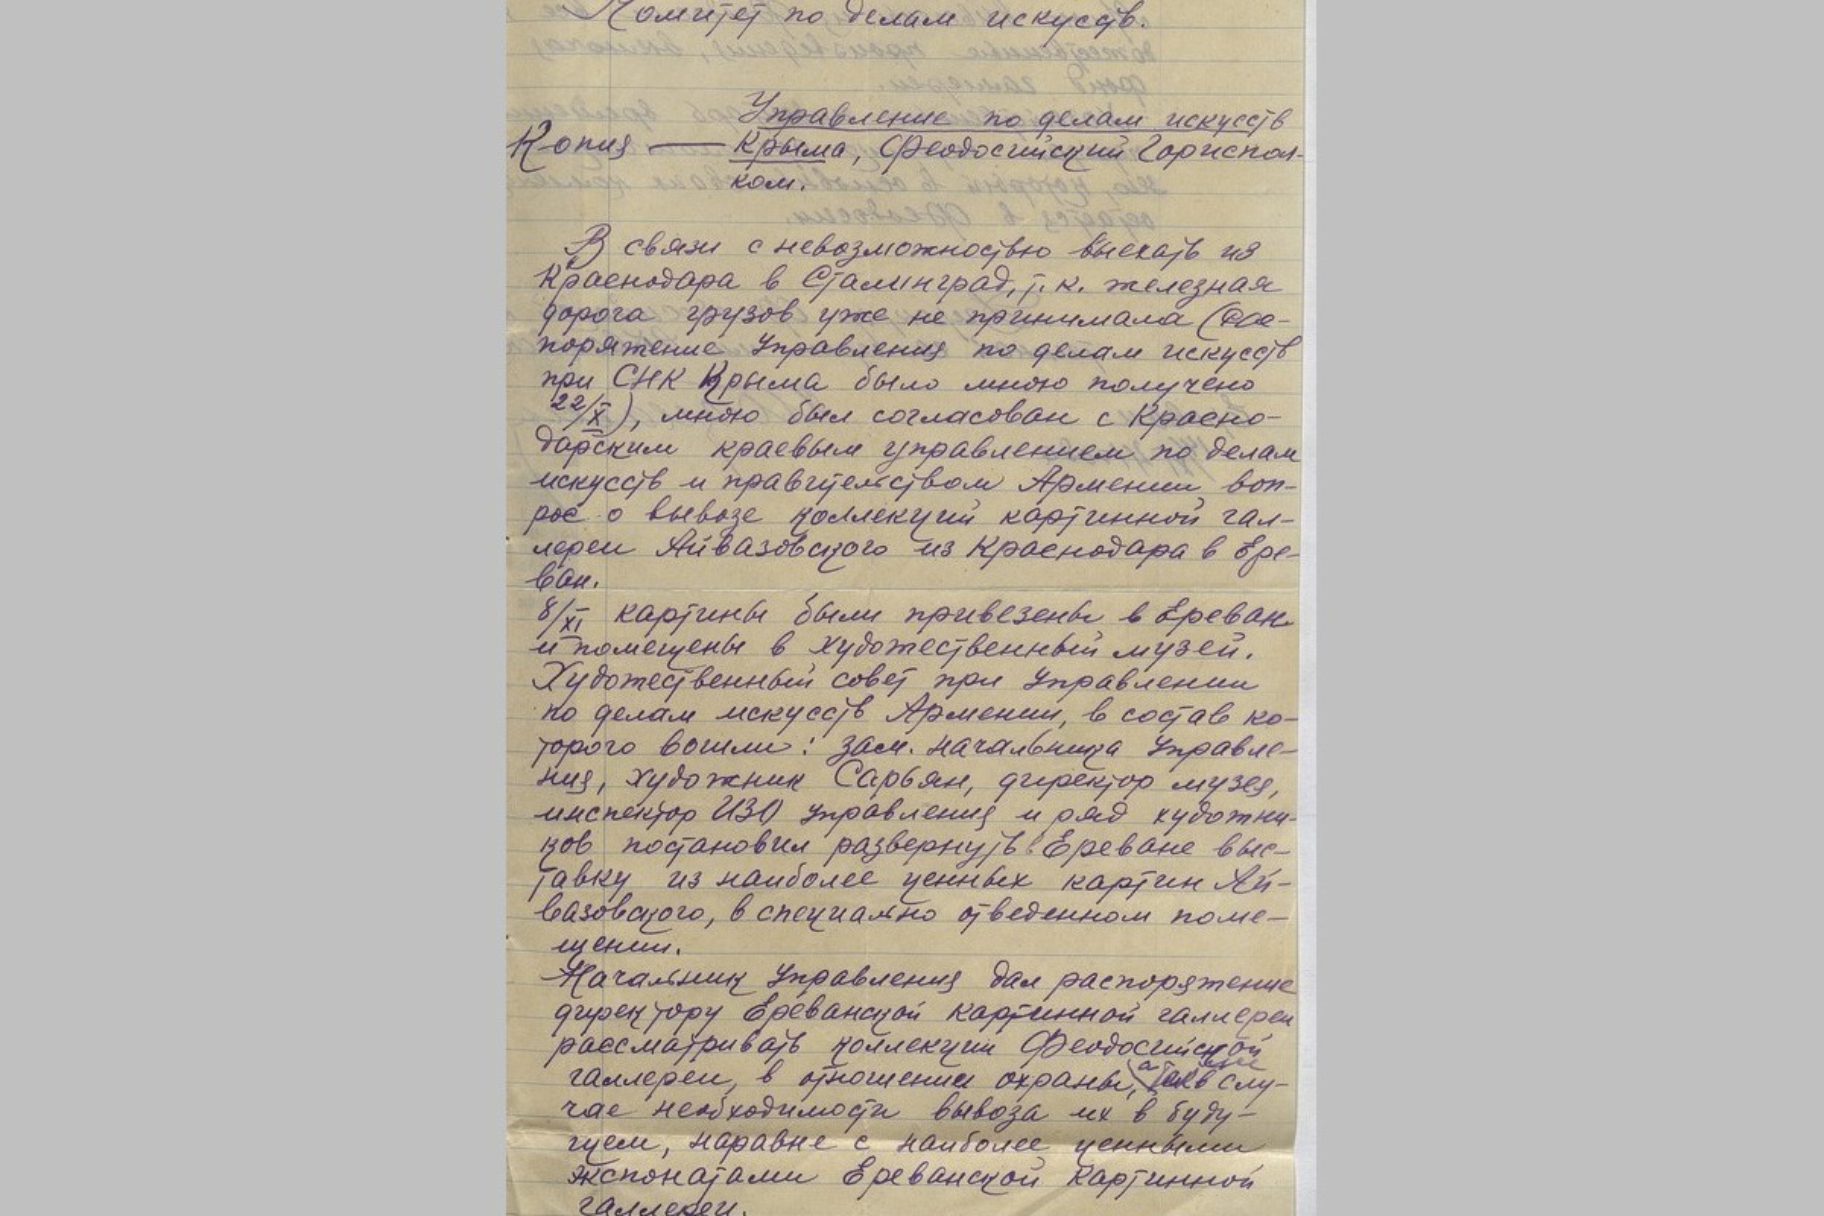 Комитет по делам искусств.
Управление по делам искусств
Копия — Крыма, Феодосийский Гориспол-
ком.
В связи с невозможностью выехать из
Краснодара в Сталинград, т. к. железная
дорога грузов уже не принимала (рас-
поряжение Управления по делам искусств
при СНК Крыма было мною получено
22/X), мною был согласован с Красно-
дарским краевым управлением по делам
искусств и правительством Армении воп-
рос о вывозе коллекций картинной гал-
лереи Айвазовского из Краснодара в Ере-
ван.
8/XI картины были привезены в Ереван
и помещены в художественный музей.
Художественный совет при Управлении
по делам искусств Армении, в состав ко-
торого вошли: зам. начальника Управле-
ния, художник Сарьян, директор музея,
инспектор ИЗО Управления и ряд художни-
ков постановил развернуть в Ереване выс-
тавку из наиболее ценных картин Ай-
вазовского, в специально отведенном поме-
щении.
Начальник Управления дал распоряжение
директору Ереванской картинной галлереи
рассматривать коллекции Феодосийской
галлереи, в отношении охраны, а в слу-
чае необходимости вывоза их в буду-
щем, наравне с наиболее ценными
экспонатами Ереванской Картинной
галлереи.